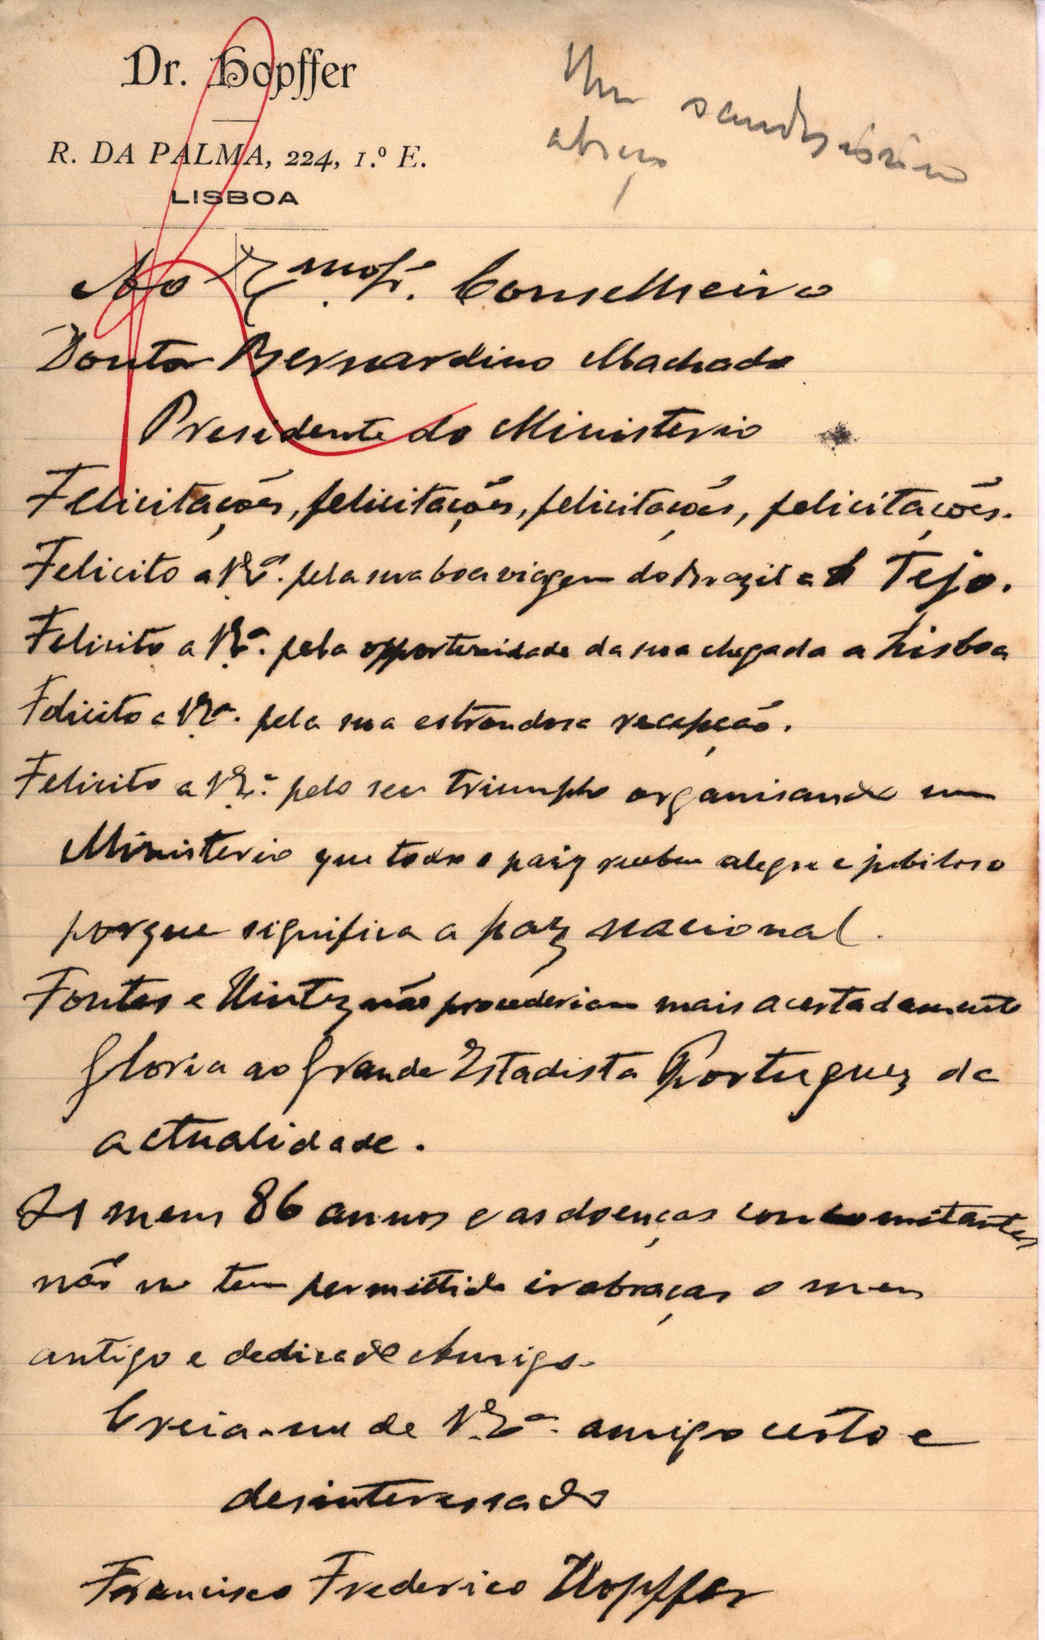 Dr. Hopffer
R. DA PALMA, 224, 1.º E.
LISBOA
Um saudosissimo
abraço
Ao Exmo Sr. Conselheiro
Doutor Bernardino Machado
Presidente do Ministerio
Felicitações, felicitações, felicitações, felicitações.
Felicito a V. Exª. pela sua boa viagem do Brazil ao Tejo.
Felicito a V. Exª. pela opportunidade da sua chegada a Lisboa
Felicito a V. Exª. pela sua estrondosa recepção.
Felicito a V. Exª. pelo seu triumpho organisando um
Ministerio que todo o paiz recebeu alegre e jubiloso
porque significa a paz nacional.
Fontes e Hintz não procederiam mais acertadamente
Gloria ao Grande Estadista Portuguez da
actualidade.
Os meus 86 annos e as doenças concomitantes
não me tem permittido ir abraçar o meu
antigo e dedicado Amigo.
Creia-me de V. Exª. amigo certo e
desinteressado
Francisco Frederico Hopffer